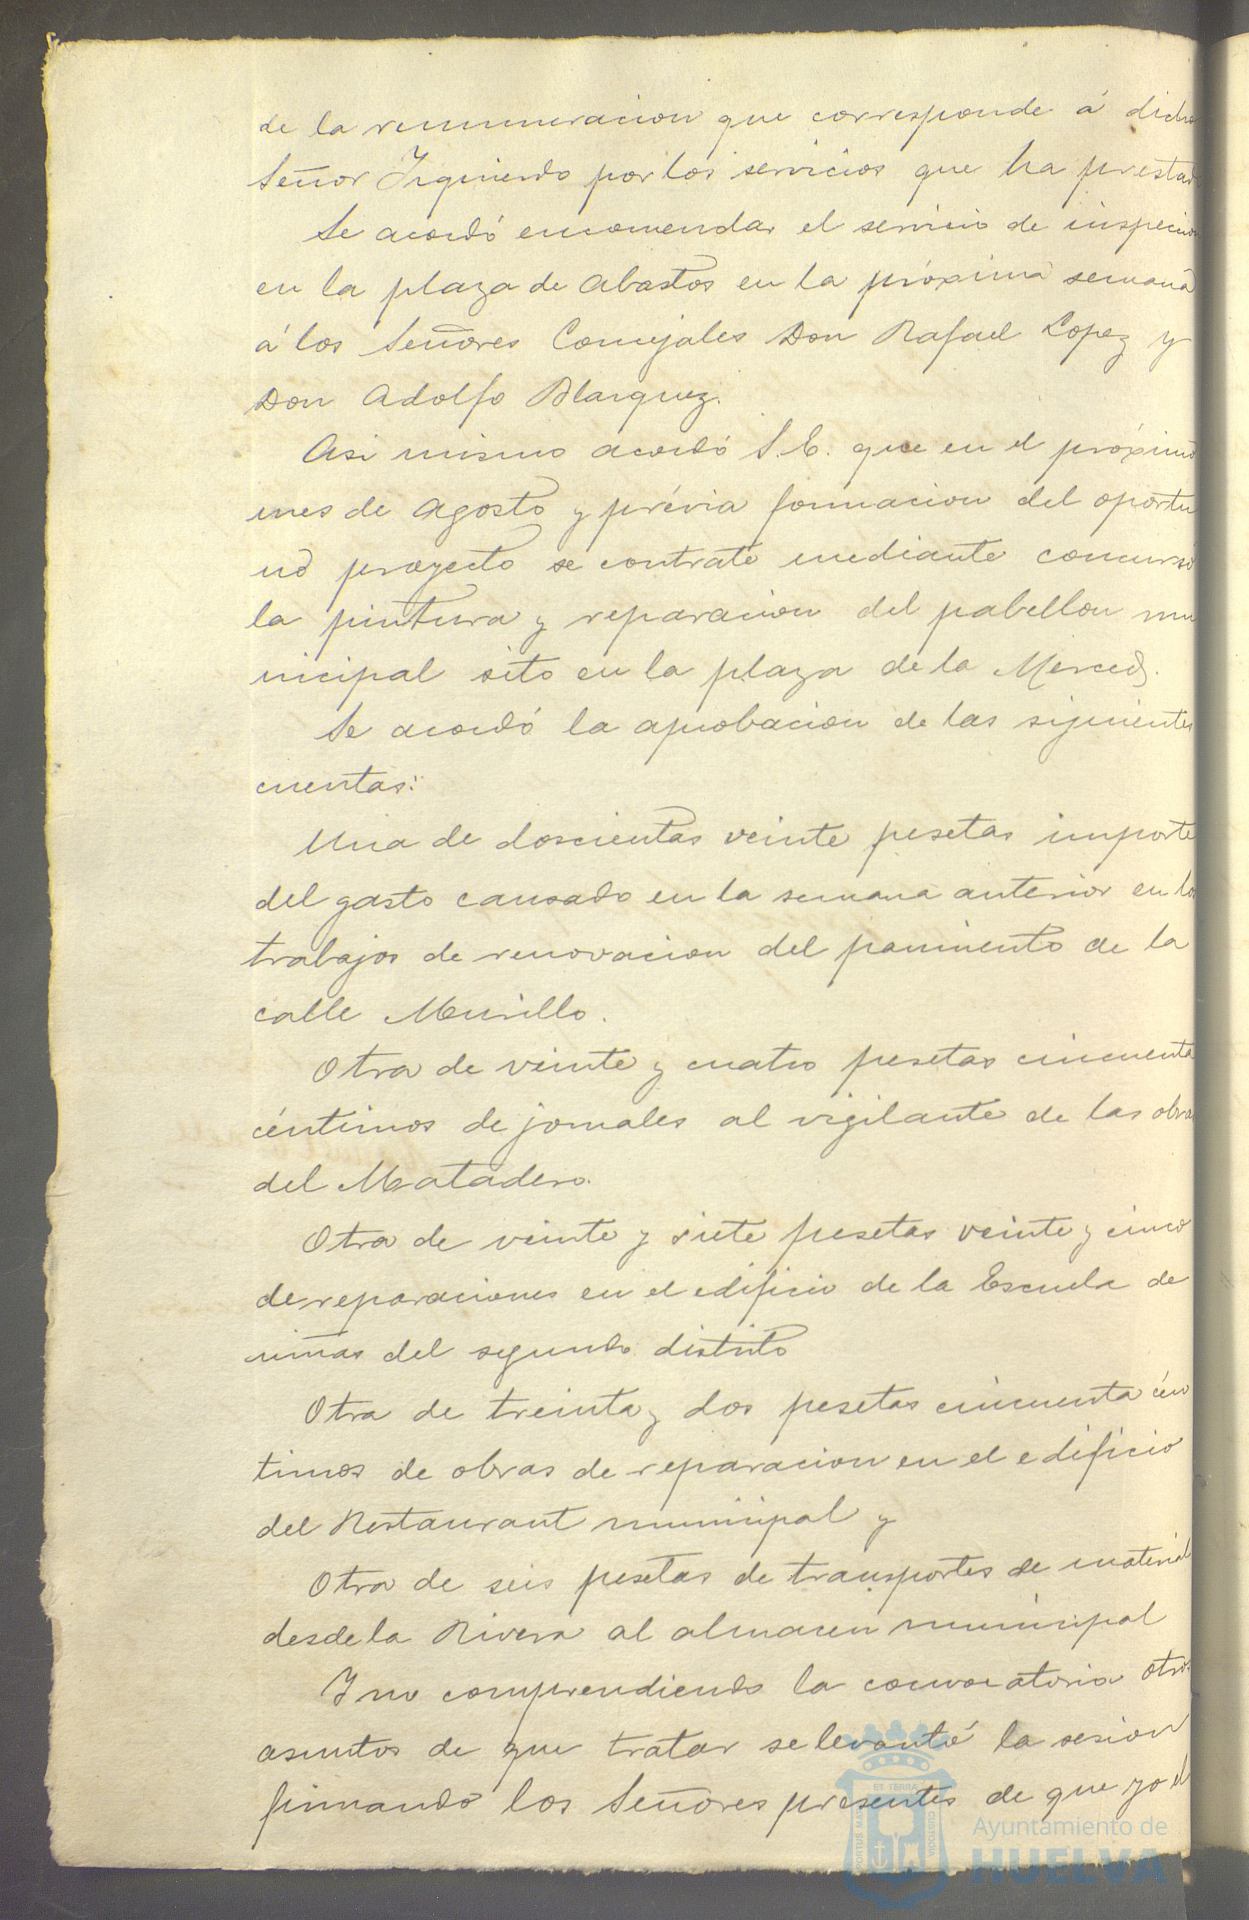 de la remuneracion que corresponde á dicho
Señor Izquierdo por los servicios que ha prestado
Se acordó encomendar el servicio de inspeccion
en la plaza de abastos en la próxima semana
á los Señores Concejales Don Rafael Lopez y
Don Adolfo Blazquez.
Asi mismo acordó S.E. que en el próximo
mes de Agosto y prévia formacion del oportu
no proyecto se contrate mediante concurso
la pintura y reparacion del pabellon mu
nicipal sito en la plaza de la Merced.
Se acordó la aprobacion de las siguientes
cuentas:
Una de doscientas veinte pesetas importe
del gasto causado en la semana anterior en los
trabajos de renovacion del pavimento de la
calle Murillo.
Otra de veinte y cuatro pesetas cincuenta
céntimos de jornales al vigilante de las obras
del Matadero.
Otra de veinte y siete pesetas veinte y cinco
de reparaciones en el edificio de la Escuela de
niñas del segundo distrito
Otra de treinta y dos pesetas cincuenta cén
timos de obras de reparacion en el edificio
del Restaurant municipal y
Otra de seis pesetas de transportes de material
desde la Rivera al almacen municipal
Y no comprendiendo la convocatoria otros
asuntos de que tratar se levantó la sesion
firmando los Señores presentes de que yo el
Ayuntamiento de
HUELVA